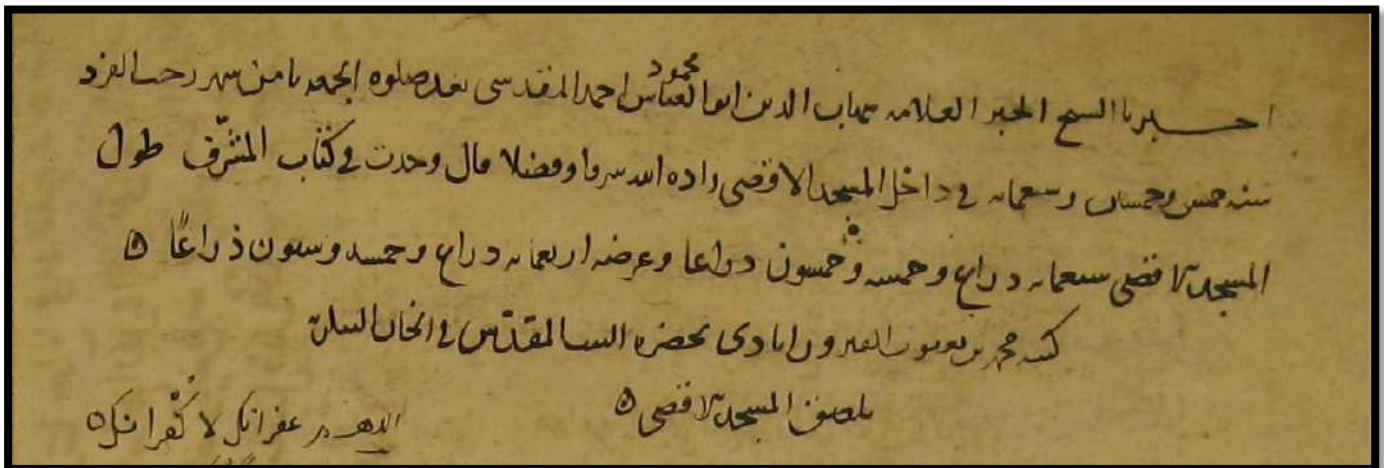 اخبرنا الشيخ الحبر العلامه شهاب الدين ابو محمود العباس احمد المقدسي بعد صلوه الجمعه ثامن شهر رجب الفرد
سنه خمس وخمسين وسبعمائه في داخل المسجد الاقصى زاده الله شرفا وفضلا قال وجدت في كتاب المشرّف طول
المسجد الاقصى سبعمائه ذراع وخمسه وخمسون ذراعا وعرضه اربعمائه ذراع وخمسه وستون ذراعًا ٥
كتبه محمد بن يعقوب الفيروزابادي بحضره البيت المقدّس في الخان
بلصق المسجد الاقصى ٥
اللهم غفرانك لا كُفْرانك ٥